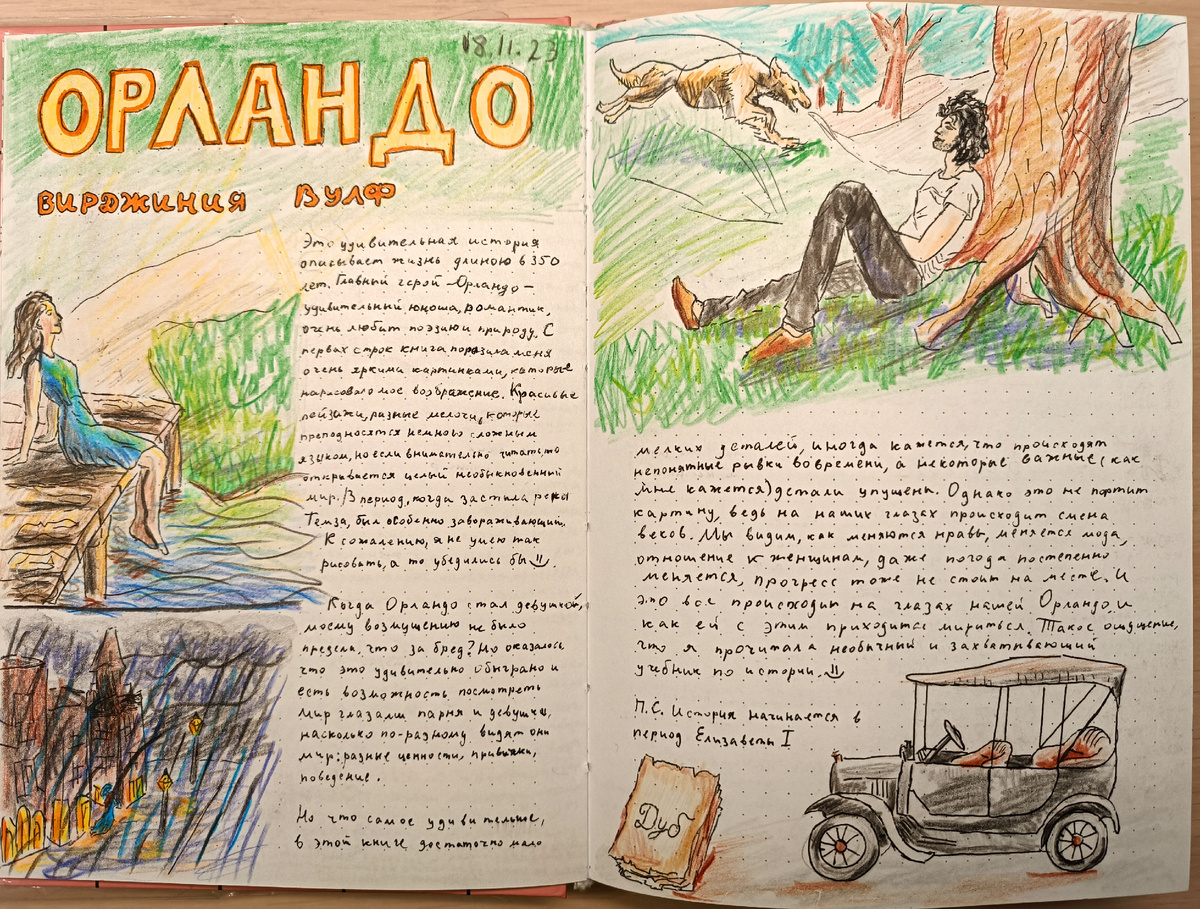 18.11.23
ОРЛАНДО
ВИРДЖИНИЯ ВУЛФ
Это удивительная история
описывает жизнь длиною в 350
лет. Главный герой – Орландо –
удивительный юноша, романтик,
очень любит поэзию и природу. С
первых строк книга поразила меня
очень яркими картинками, которые
нарисовало мое воображение. Красивые
пейзажи, разные мелочи, которые
преподносятся немного сложным
языком, но если внимательно читать, то
открывается целый необыкновенный
мир. В период, когда застыла река
Темза, был особенно завораживающий.
К сожалению, я не умею так
рисовать, а то убедились бы =).
Когда Орландо стал девушкой,
моему возмущению не было
предела, что за бред? Но оказалось
что это удивительно обыграно и
есть возможность посмотреть
мир глазами парня и девушки,
насколько по-разному видят они
мир: разные ценности, привычки,
поведение.
Но что самое удивительное,
в этой книге достаточно мало
мелких деталей, иногда кажется, что происходят
непонятные рывки во времени, а некоторые важные (как
мне кажется) детали упущены. Однако это не портит
картину, ведь на наших глазах происходит смена
веков. Мы видим, как меняются нравы, меняется мода,
отношение к женщинам, даже погода постепенно
меняется, прогресс тоже не стоит на месте. И
это все происходит на глазах нашей Орландо и
как ей с этим приходится мириться. Такое ощущение,
что я прочитала необычный и захватывающий
учебник по истории. =)
П.С. История начинается в
период Елизаветы I
Дуб